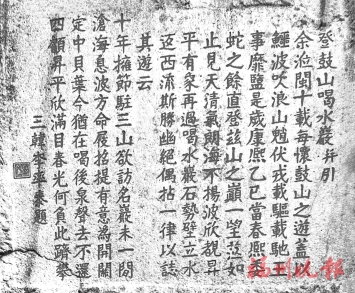 登鼓山喝水巖并引
余涖閩十載每懷鼓山之遊蓋以
鯨波吹浪山魈伏戎載驅載馳王
事靡鹽是歲康熙乙巳當春熙登
蛇之餘直登茲山之巔一望茫如
止見天清氣朗海不揚波欣覩昇
平有象再過喝水巖石勢壁立水
逆西流斯勝幽絕偶拈一律以誌
其遊云
十年擁節駐三山欲訪名巖未一閒
滄海息波方命屐招提有意為開關
定中貝葉今猶在喝後泉聲去不還
四顧昇平欣滿目春光何負此躋攀
三韓李率泰題
福州晚報